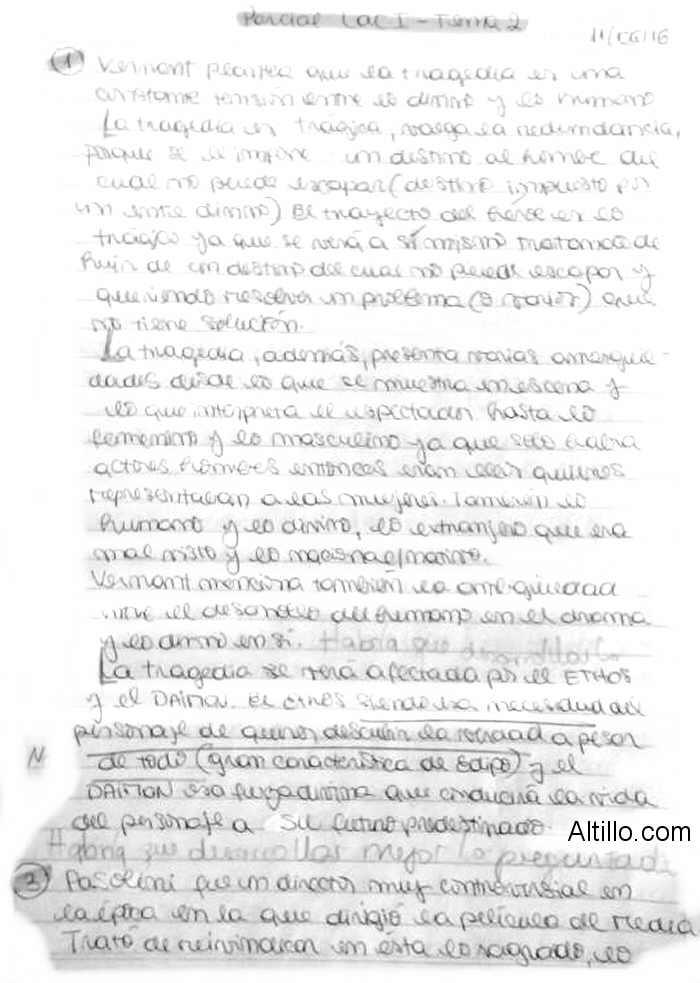 Parcial LAC I - Tema 2
11/06/16
1 Vernant plantea que la tragedia es una
constante tensión entre lo divino y lo humano
La tragedia es trágica, valga la redundancia,
porque se le impone un destino al hombre del
cual no puede escapar (destino impuesto por
un ente divino) El trayecto del héroe es lo
trágico ya que se verá a sí mismo tratando de
huir de un destino del cual no puede escapar y
queriendo resolver un problema (o varios) que
no tiene solución.
La tragedia, además, presenta varias ambigüe-
dades desde lo que se muestra en escena y
lo que interpreta el espectador hasta lo
femenino y lo masculino ya que solo había
actores hombres entonces eran ellos quienes
representaban a las mujeres. También lo
humano y lo divino, lo extranjero que era
mal visto y lo nacional/nativo.
Vernant menciona también la ambigüedad
entre el desarrollo del humano en el drama
y lo divino en sí. Habría que desarrollarlo
La tragedia se verá afectada por el ETHOS
y el DAIMON. El ethos siendo esa necesidad del
personaje de querer descubrir la verdad a pesar
N de todo (gran característica de Edipo) y el
DAIMON esa fuerza divina que conducirá la vida
del personaje a su futuro predestinado.
Altillo.com
Habría que desarrollar mejor lo preguntado
3 Pasolini fue un director muy controversial en
la época en la que dirigió la película de Medea
Trató de reivindicar en ésta lo sagrado, lo